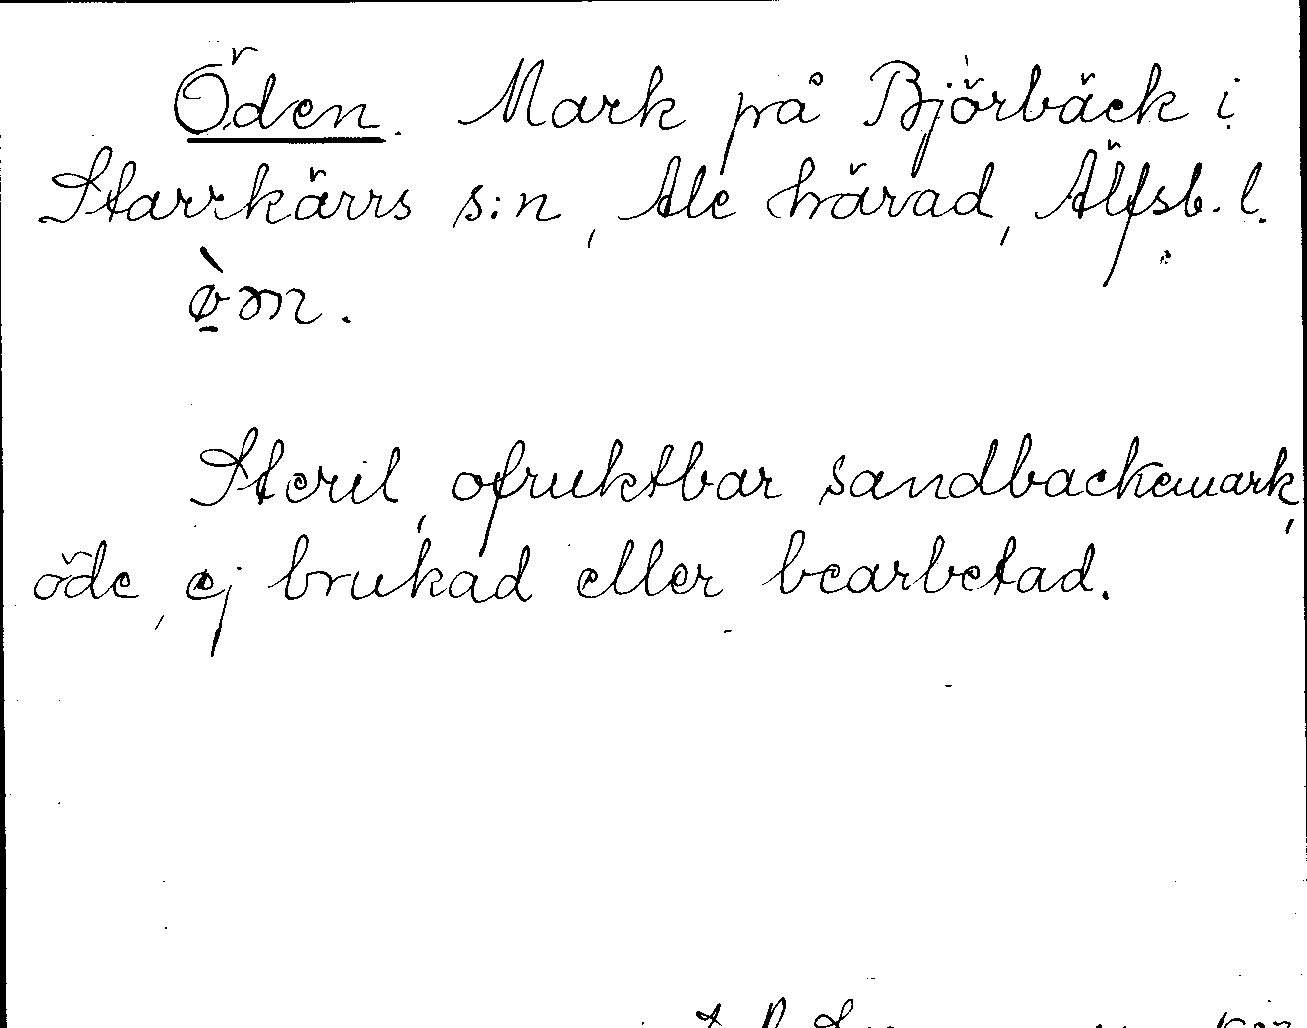 Öden. Mark på Björbäck i
Starrkärrs s:n, Ale härad, Älfsb. l.
ø̱̀ən.
Steril, ofruktbar sandbackemark,
öde, ej brukad eller bearbetad.